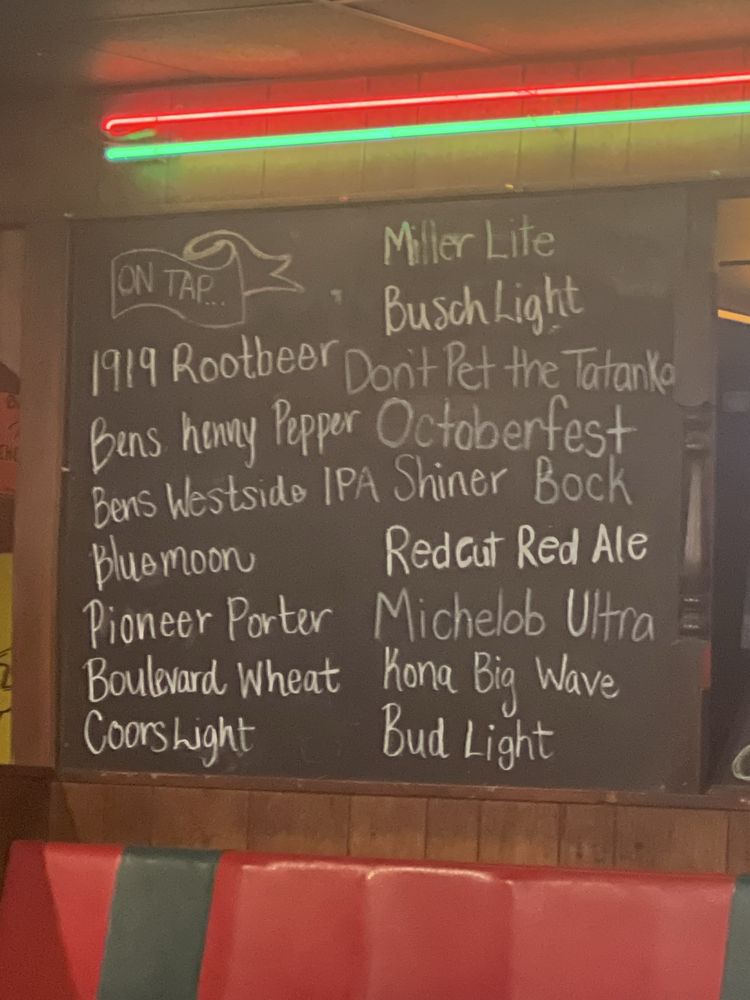 ON TAP...
1919 Rootbeer
Bens henny Pepper
Bens Westside IPA
Bluemoon
Pioneer Porter
Boulevard Wheat
Coors Light
Miller Lite
Busch Light
Don't Pet the Tatanka
Octoberfest
Shiner Bock
Redcut Red Ale
Michelob Ultra
Kona Big Wave
Bud Light